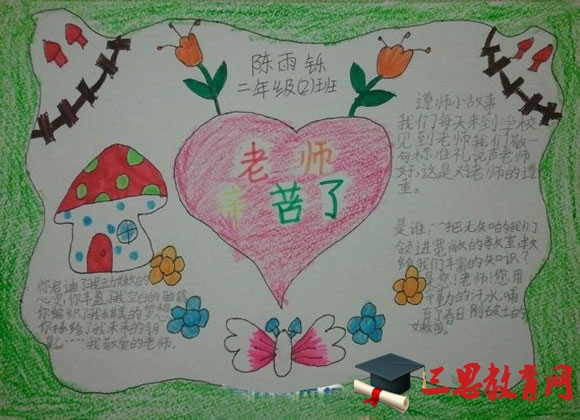 陈雨铄
二年级(2)班
老师
辛苦了
遵师小故事
我们每天来到学校
见到老师我们敬一
句标准礼说声老师
好,这是对老师的遵
重。
是谁,一把无知的我们
领进宽敞的教室,教
给我们丰富的知识?
您!老师!您用
勤的汗水,哺
育了春日刚破土的
你启迪了我幼嫩的
心灵,你丰盈了我空白的
你编织了我甜美的梦
你描绘了我未来的
我敬爱的老师。
三思教育网